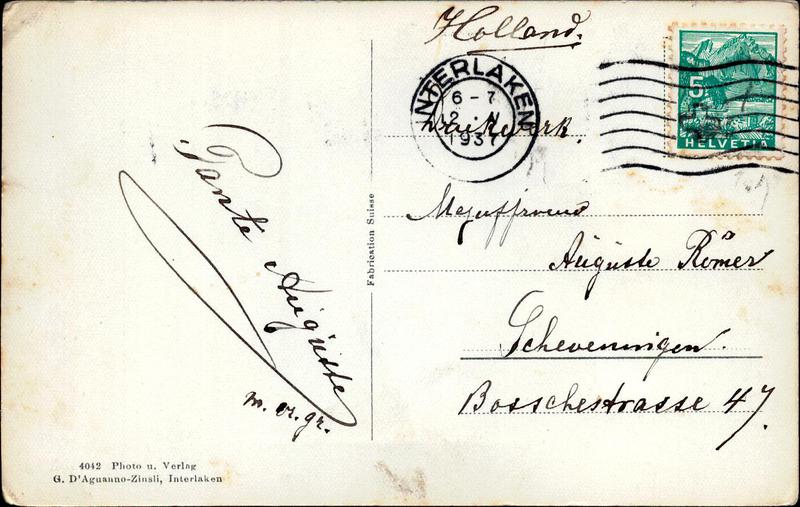 Holland.
INTERLAKEN
6-7
1937
5
HELVETIA
Drukwerk.
Mejuffrouw
Auguste Römer
Scheveningen.
Bosschestrasse 47.
Tante Auguste
m. vr. gr.
Fabrication Suisse
4042 Photo u. Verlag
G. D'Aguanno-Zinsli, Interlaken